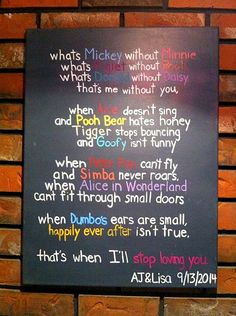 whats Mickey without Minnie
whats without
whats Donald without Daisy
thats me without you,
when doesn't sing
and Pooh Bear hates honey
Tigger stops bouncing
and Goofy isn't funny
when Peter Pan can't fly
and Simba never roars,
when Alice in Wonderland
cant fit through small doors
when Dumbo's ears are small,
happily ever after isn't true.
that's when I'll stop loving you.
AJ&Lisa 9/13/2014